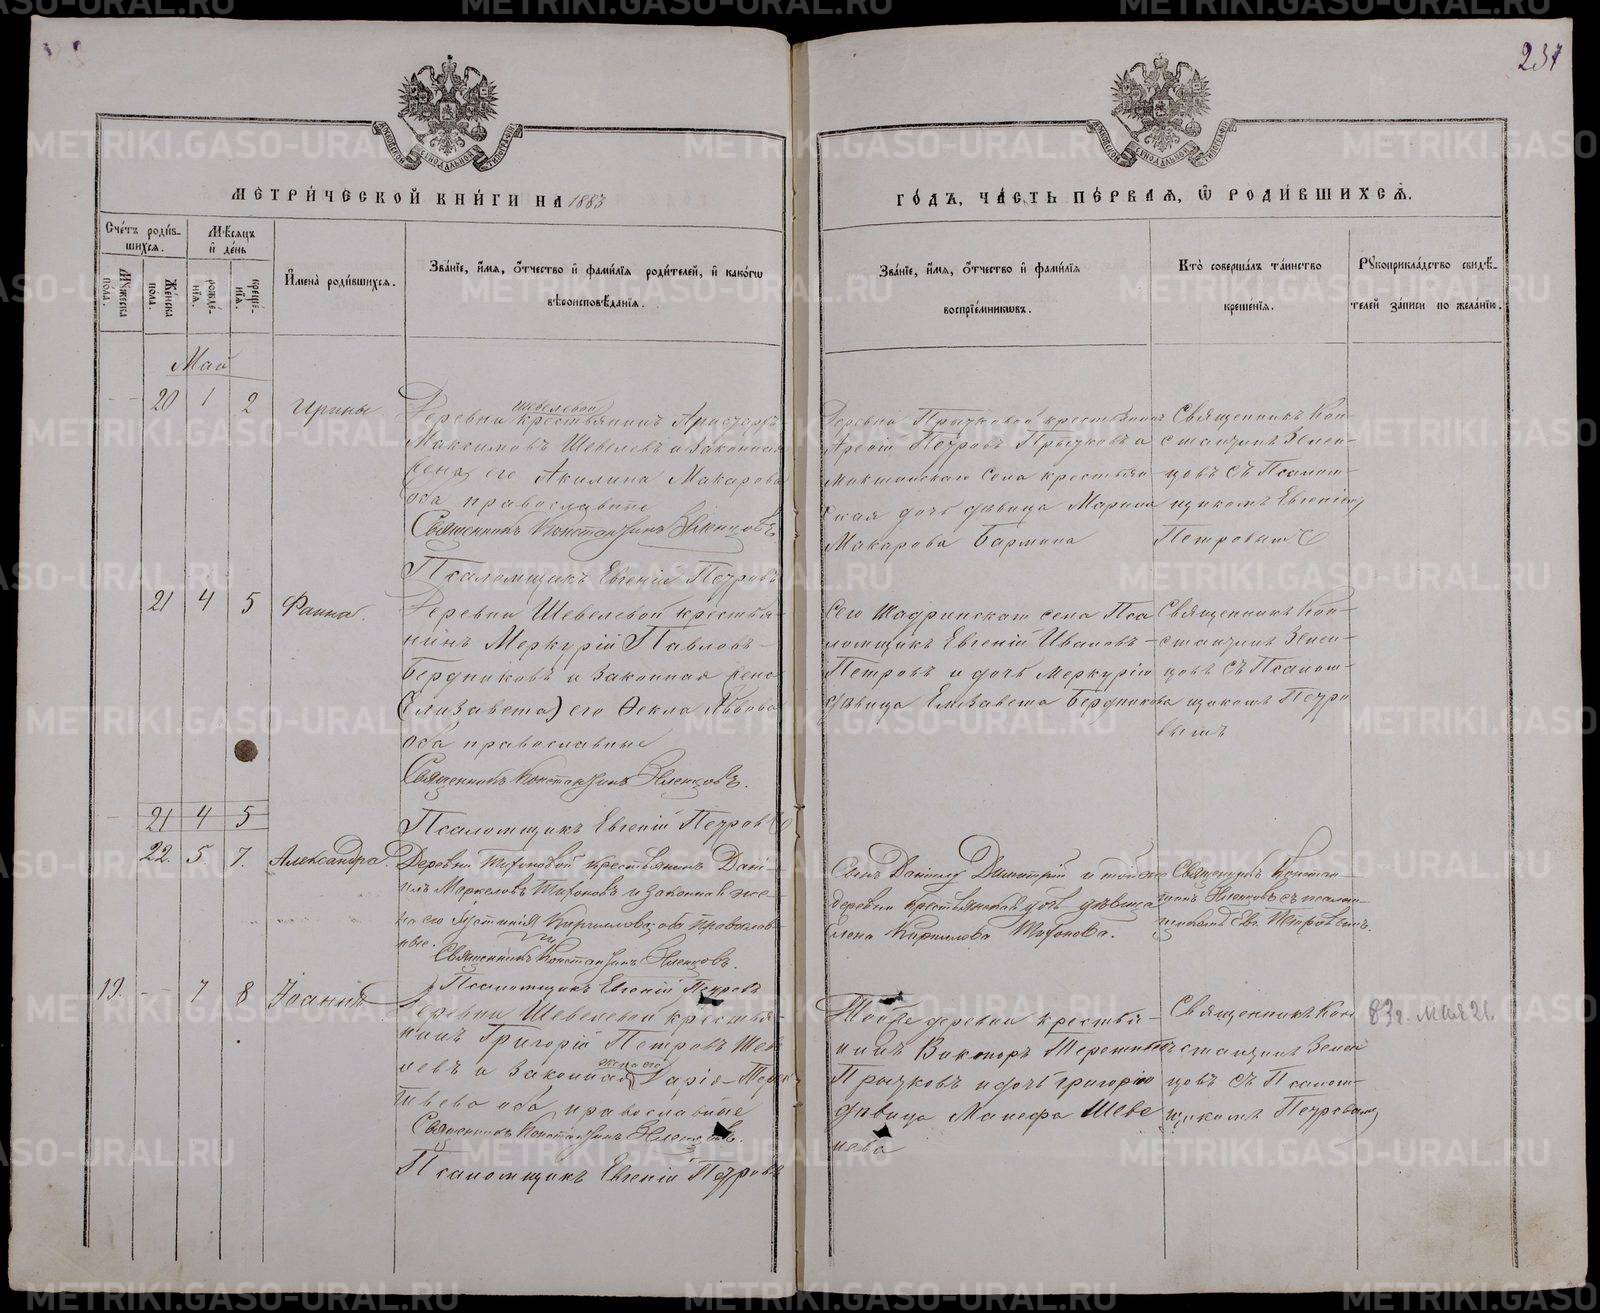 237
МЕТРИ́ЧЕСКОЙ КНИ́ГИ НА 1883
ГО́ДЪ, ЧА́СТЬ ПЕ́РВАѦ, Ѿ РОДИ́ВШИХСѦ.
Сче́тъ роди́в-
шихсѧ.
Мѹжеска
пола.
Же́нска
по́ла.
Мѣсѧцъ
и҆ де́нь
рожде́-
нїѧ.
креще́-
нїѧ.
И҆мена̀ роди́вшихсѧ.
Зва́нїе, и҆́мѧ, ѻ҆́тчество и҆ фами́лїѧ роди́телей, и҆ како́гѡ
вѣроисповѣ́данїѧ.
Зва́нїе, и҆́мѧ, ѻ҆́тчество и҆ фами́лїѧ
воспрїе́мникѡвъ.
Кто̀ соверша́лъ та́инство
креще́нїѧ.
Рꙋкоприкла́дство свидѣ́-
телей за́писи по жела́нїю.
Май
20 1 2
Ирины
шевелевой
Деревни крестьянинъ Аристархъ
Максимовъ Шевелевъ и законная
жена его Акилина Макарова
оба православные
Священникъ Константинъ Зеленцовъ
Псаломщикъ Евгеній Петровъ
Деревни Прытковой крестьянинъ
Арсеній Петровъ Прытковъ и
села крестьян-
ская дочь дѣвица Марина
Макарова Бармина
Священникъ Кон-
стантинъ Зелен-
цовъ съ Псалом-
щикомъ Евгеніемъ
Петровымъ
21 4 5
Фаина
Деревни Шевелевой крестья-
нинъ Меркурій Павловъ
Бердниковъ и законная жена
(Елизавета) его Ѳекла Львова
оба православные
Священникъ Константинъ Зеленцовъ.
Псаломщикъ Евгеній Петровъ
Сего Шадринскаго села Пса-
ломщикъ Евгеній Ивановъ
Петровъ и дочь Меркурія
дѣвица Елизавета Бердникова
Священникъ Кон-
стантинъ Зелен-
цовъ съ Псалом-
щикомъ Петро
вымъ
21 4 5
22. 5. 7.
Александра.
Деревни Тихоновой крестьянинъ Дані-
илъ Маркеловъ Тихоновъ и законная же-
на его Іустинія Кириллова, оба православ-
ные.
Священникъ Константинъ Зеленцовъ.
Псаломщикъ Евгеній Петровъ
Сынъ Даніилу Димитрій и тойже
деревни крестьянская дочь дѣвица
Елена Кириллова Тихонова.
Священникъ Констан-
тинъ Зеленцовъ съ псалом-
щикомъ Евг. Петровымъ.
19. 7 8
Іоаннъ
Деревни Шевелевой крестья-
нинъ Григорій Петровъ Шеве-
левъ и законная жена его Дарія
оба православные
Священникъ Константинъ Зеленцовъ.
Псаломщикъ Евгеній Петровъ
Тойже деревни крестья-
нинъ Викторъ
Прытковъ и дочь Григорія
дѣвица Манефа Шеве
лева
Священникъ Кон
стантинъ Зелен
цовъ съ Псалом-
щикомъ Петровымъ
83 г. мая 21.
METRIKI.GASO-URAL.RU